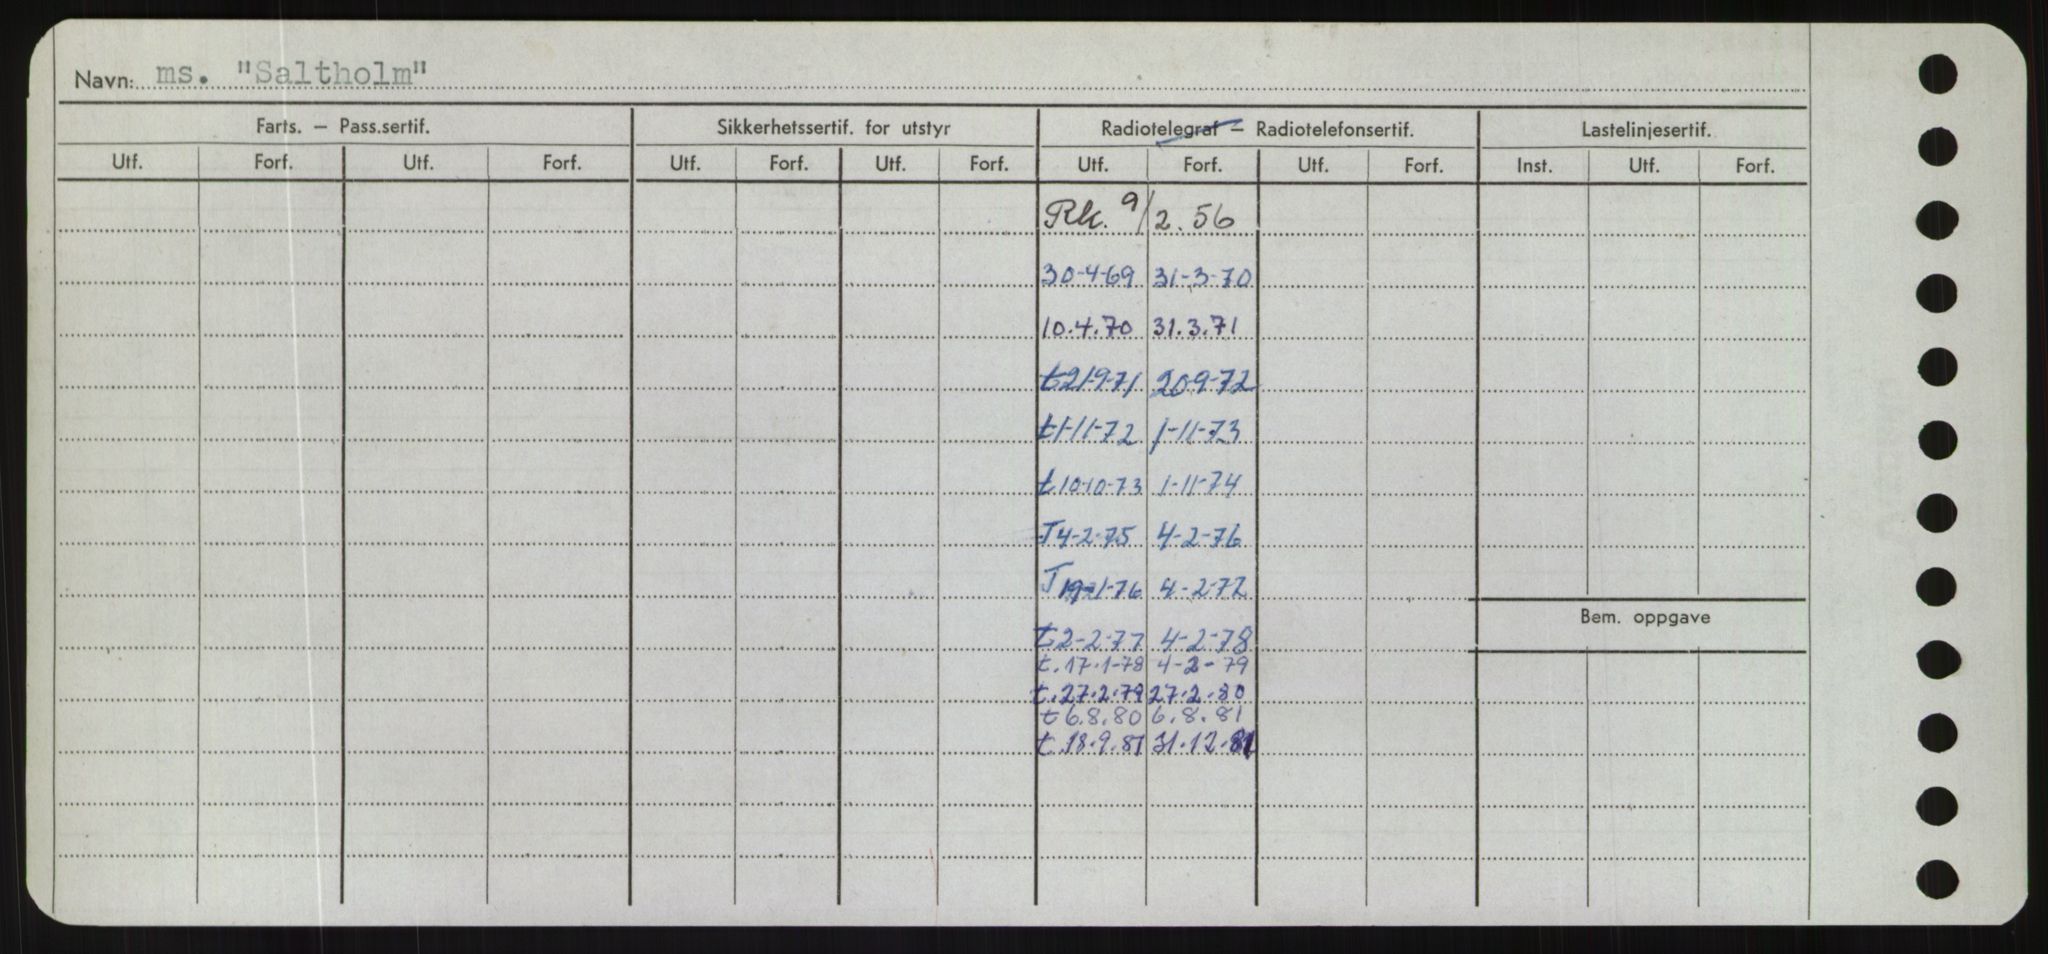 Navn: ms. "Saltholm"
Farts. — Pass.sertif. Sikkerhetssertif. for utstyr Radiotelegraf — Radiotelefonsertif. Lastelinjesertif.
Utf. Forf. Utf. Forf. Utf. Forf. Utf. Forf. Utf. Forf. Utf. Forf. Inst. Utf. Forf.
Rk. 9/2.56
30-4-69 31-3-70
10.4.70 31.3.71
t21-9-71 20-9-72
t1-11-72 1-11-73
t10-10-73 1-11-74
T4-2-75 4-2-76
T 19-1-76 4-2-77
Bem. oppgave
t2-2-77 4-2-78
t.17.1-78 4-2-79
t.27.2.79 27.2.80
t6.8.80 6.8.81
t.18.9.81 31.12.81